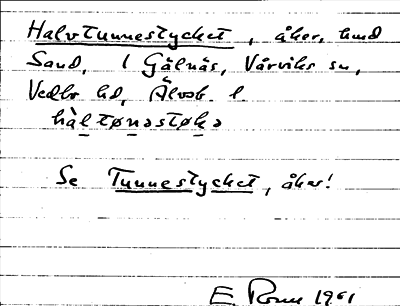 Halvtunnestycket, åker, und
Sand, 1 Gälnäs, Vårviks sn,
Vedbo hd, Älvsb. l.
hàltønəstøkə
Se Tunnestycket, åker!
E 1961